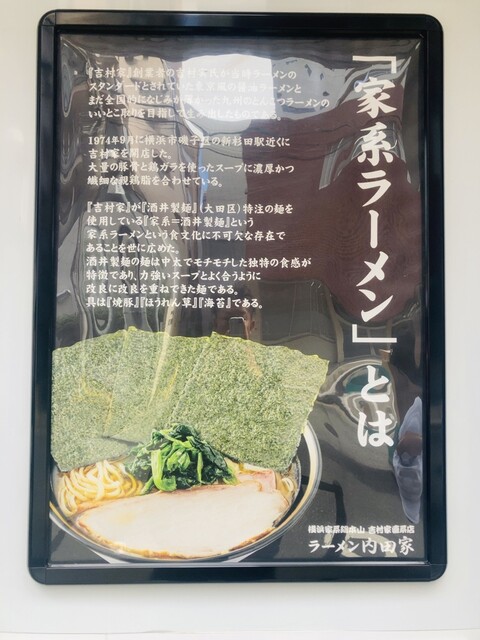 「家系ラーメン」とは
『吉村家』創業者の吉村実氏が当時ラーメンの
スタンダードとされていた東京風の醤油ラーメンと
まだ全国的になじみが薄かった九州のとんこつラーメンの
いいとこ取りを目指して生み出したものである。
1974年9月に横浜市磯子区の新杉田駅近くに
吉村家を開店した。
大量の豚骨と鶏ガラを使ったスープに濃厚かつ
繊細な親鶏脂を合わせている。
『吉村家』が『酒井製麺』(大田区)特注の麺を
使用している『家系=酒井製麺』という
家系ラーメンという食文化に不可欠な存在で
あることを世に広めた。
酒井製麺の麺は中太でモチモチした独特の食感が
特徴であり、力強いスープとよく合うように
改良に改良を重ねできた麺である。
具は『焼豚』『ほうれん草』『海苔』である。
横浜家系総本山 吉村家直系店
ラーメン内田家